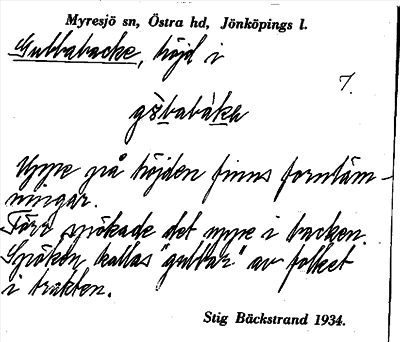 Myresjö sn, Östra hd, Jönköpings l.
Gubbabacke, höjd i
7.
Uppe på höjden finns fornläm-
ningar.
Förr spökade det uppe i backen.
Spöken kallas "gubbar" av folket
i trakten.
Stig Bäckstrand 1934.